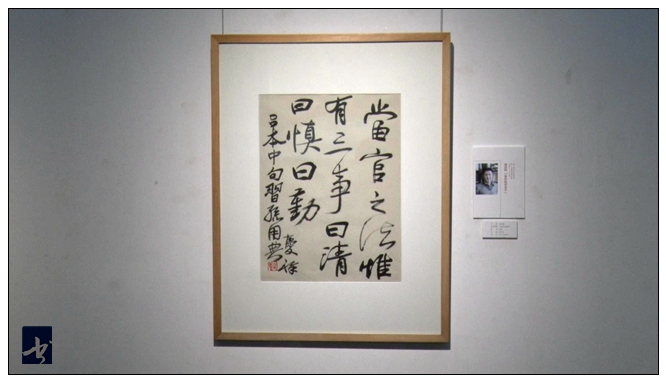 當官之法惟
有三事曰清
曰慎曰勤
呂本中句習孫用典